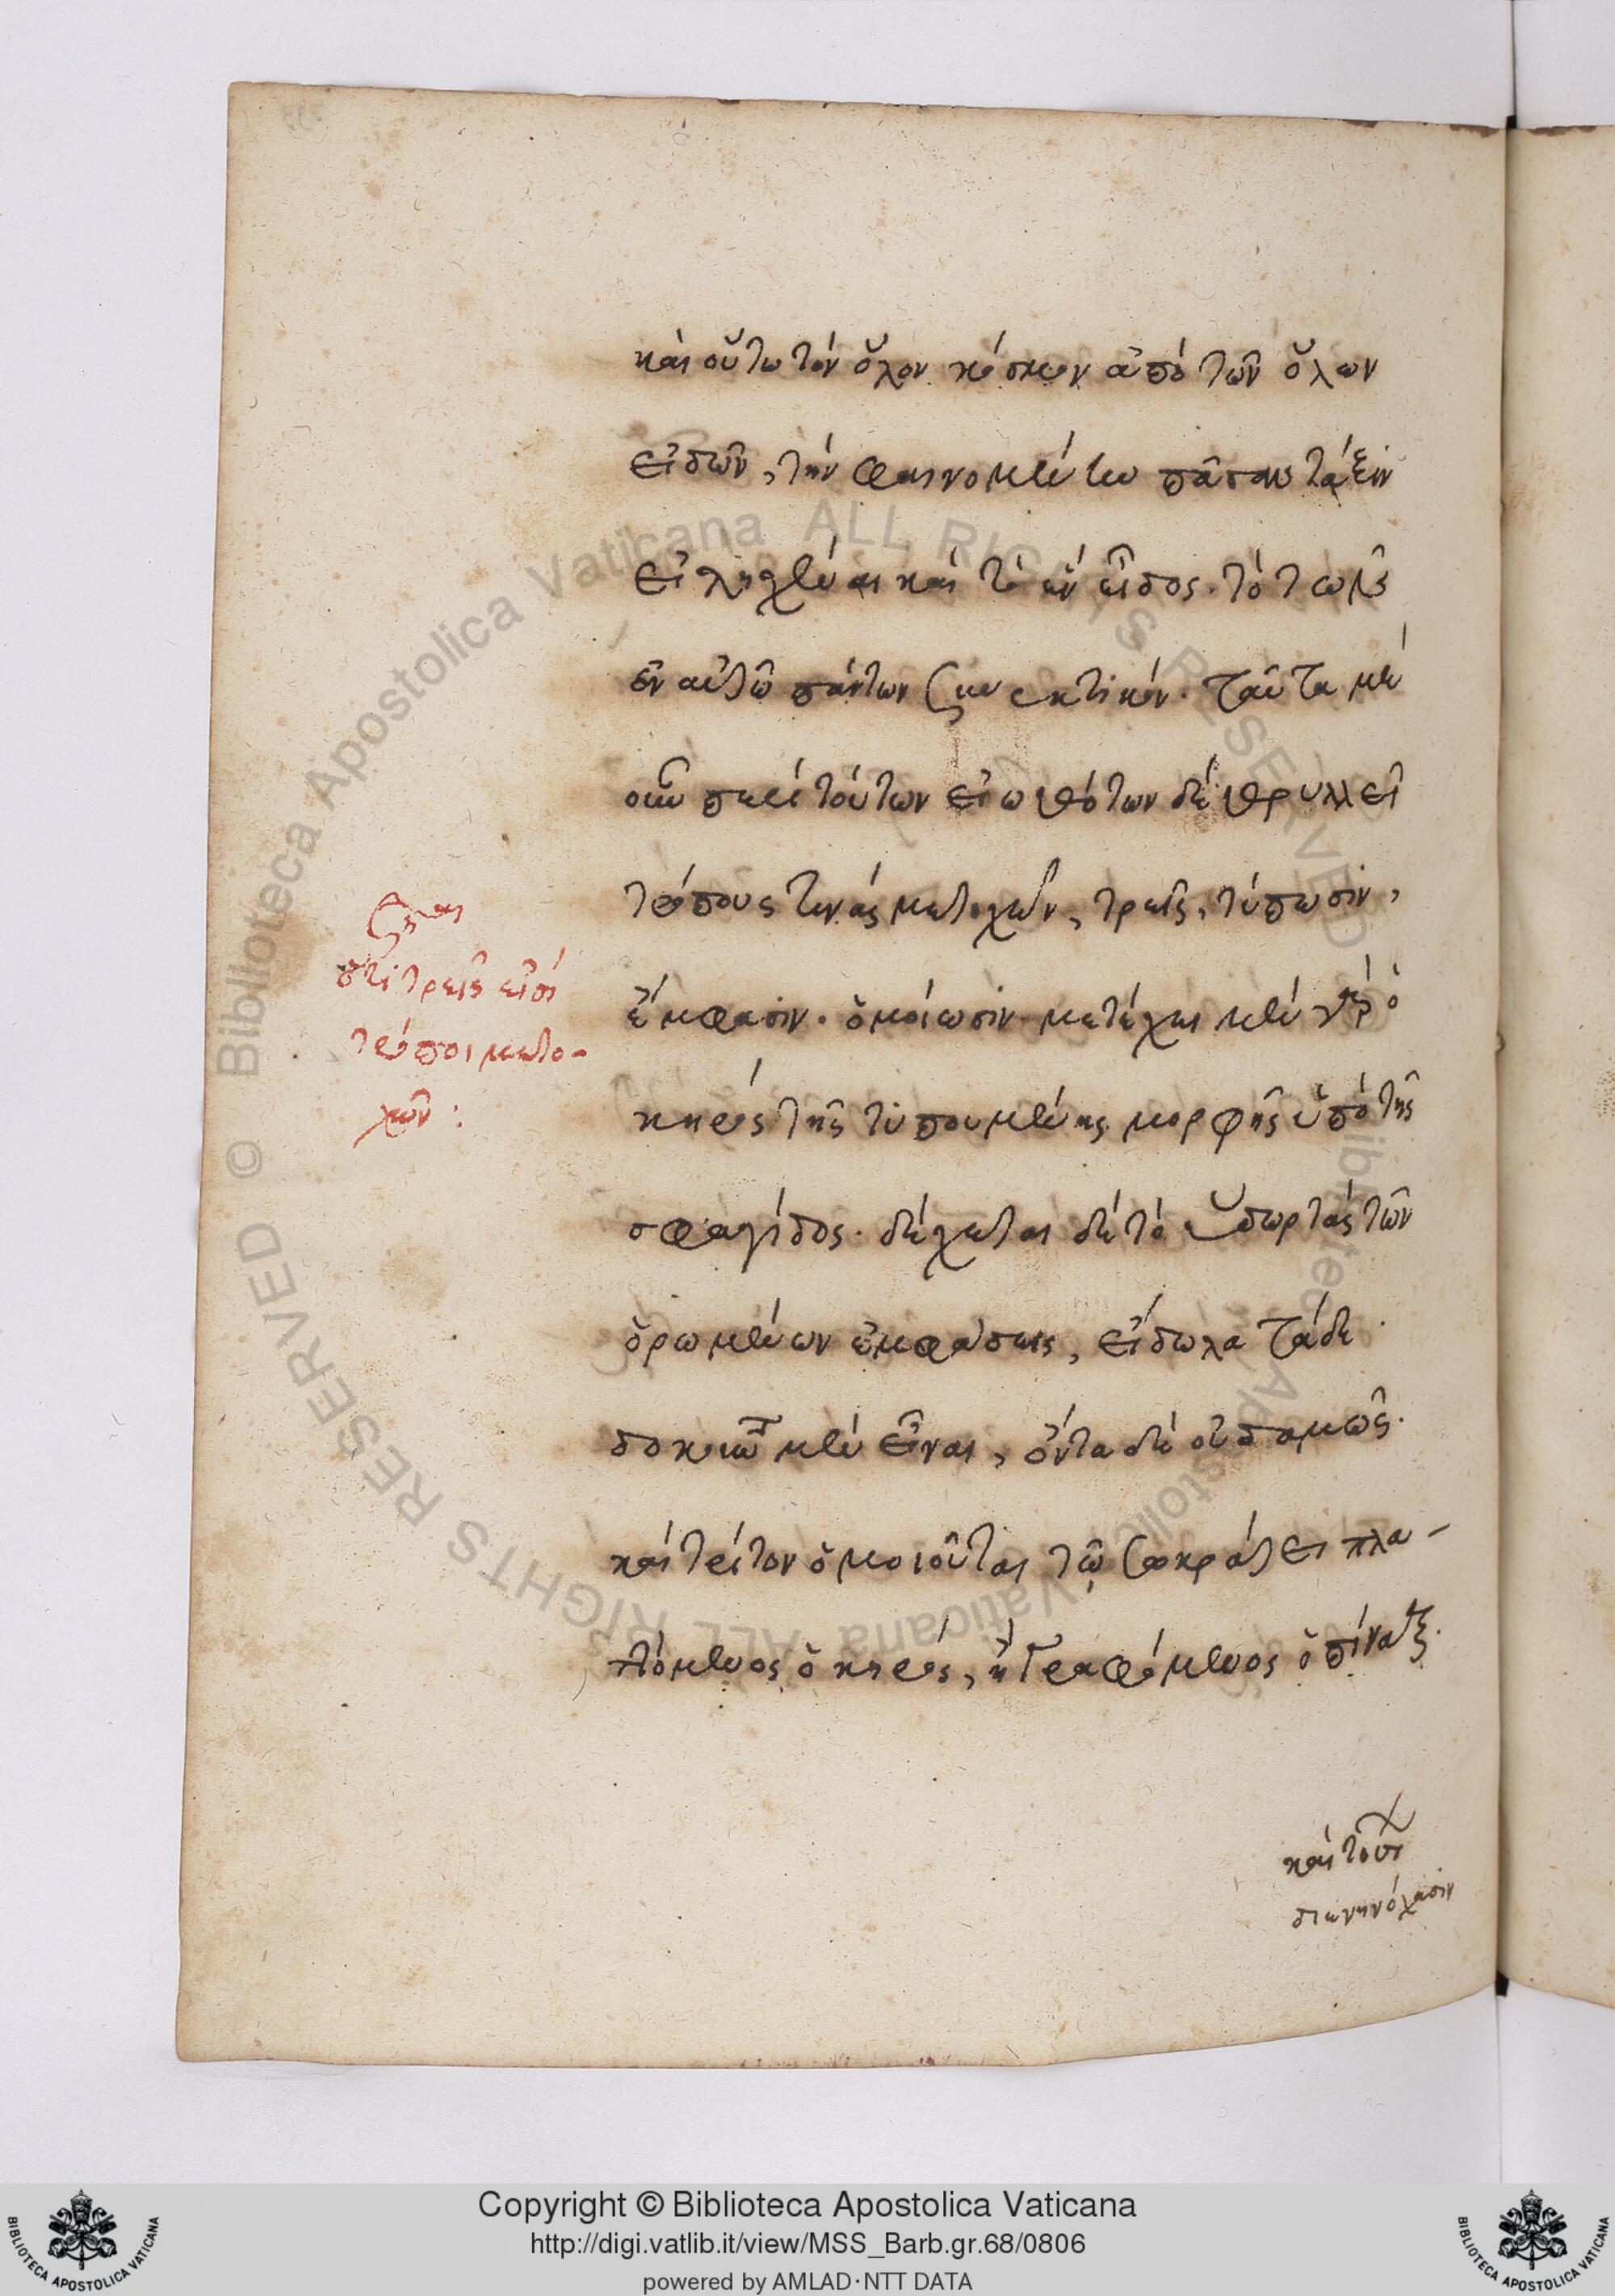 καὶ οὕτω τὸν ὅλον κόσμον ἀπὸ τῶν ὅλων
εἰδῶν, τὴν φαινομένην πᾶσαν τάξιν
εἰληχέναι καὶ τὸ ἓν εἶδος. τὸ τῶν
ἐν αὐτῶ πάντων συνεκτικόν. ταῦτα μὲν
οὖν περὶ τούτων εἰωθότων δὲ θρυλλεῖ
τρόπους τινὰς μετοχῶν, τρεῖς, τύπωσιν,
ἔμφασιν. ὁμοίωσιν. μετέχει μὲν γὰρ ὁ
κηρὸς τῆς τυπουμένης μορφῆς ὑπὸ τῆς
σφραγίδος. δέχεται δὲ τὸ ὕδωρ τὰς τῶν
ὁρωμένων ἐμφάσεις, εἴδωλα τάδε
δοκοῦντα μὲν εἶναι, ὄντα δὲ οὐδαμῶς.
καὶ τρίτον ὁμοιοῦται τῶ Σωκράτει πλα-
τόμενος ὁ κηρός, ἢ γραφόμενος ὁ πίναξ.
ὅτι τρεῖς εἰσὶ
τρόποι μετο-
χῶν:
καὶ
διενηνόχασιν
Copyright © Biblioteca Apostolica Vaticana
http://digi.vatlib.it/view/MSS_Barb.gr.68/0806
powered by AMLAD·NTT DATA
BIBLIOTECA APOSTOLICA VATICANA
BIBLIOTECA APOSTOLICA VATICANA
© Biblioteca Apostolica Vaticana ALL RIGHTS RESERVED
© Biblioteca Apostolica Vaticana ALL RIGHTS RESERVED